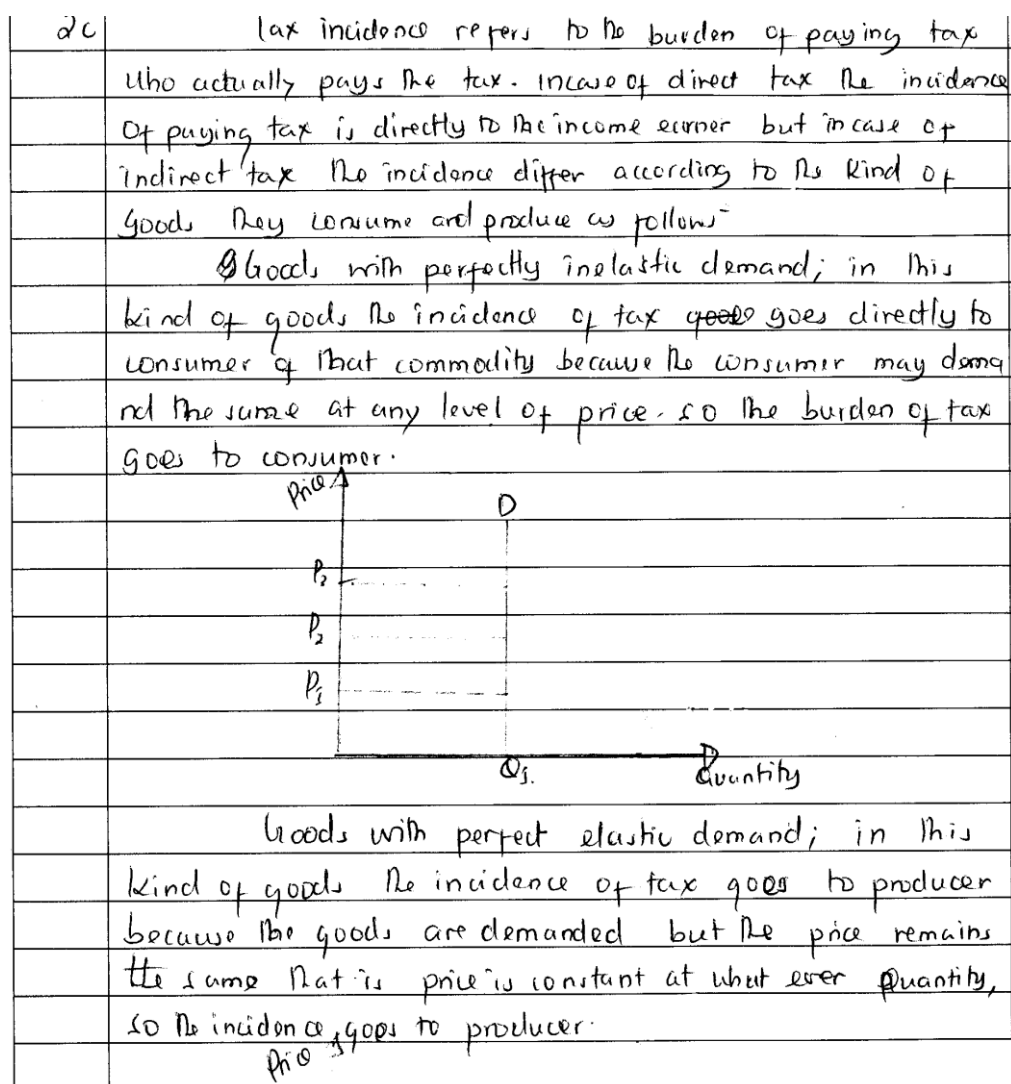 2c Tax incidence refers to the burden of paying tax
who actually pays the tax. incase of direct tax the incidence
of paying tax is directly to the income earner but in case of
indirect tax the incidence differ according to the kind of
goods they consume and produce as follows-
Goods with perfectly inelastic demand; in this
kind of goods the incidence of tax goes directly to
consumer of that commodity because the consumer may dema
nd the same at any level of price. so the burden of tax
goes to consumer.
Price
D
P3
P2
P1
Q1.
Quantity
Goods with perfect elastic demand; in this
kind of goods the incidence of tax goes to producer
because the goods are demanded but the price remains
the same that is price is constant at what ever Quantity,
so the incidence goes to producer.
Price